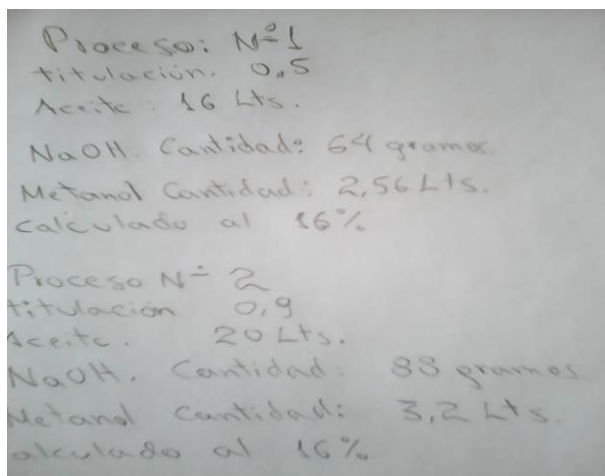 Proceso: Nº1
titulación. 0,5
Aceite: 16 Lts.
NaOH. Cantidad: 64 gramos.
Metanol Cantidad: 2,56 Lts.
calculado al 16%
Proceso Nº 2
titulación 0,9
Aceite. 20 Lts.
NaOH. Cantidad 88 gramos
Metanol Cantidad: 3,2 Lts.
alculado al 16%